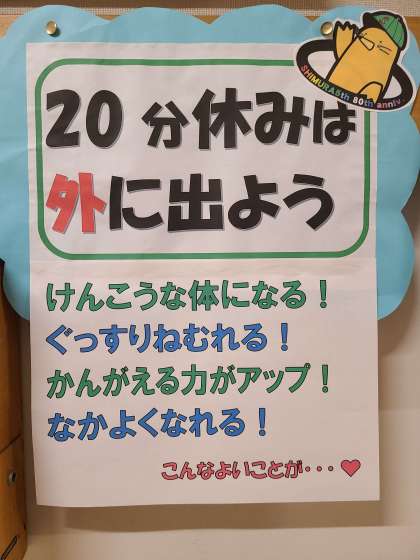 SHIMURA5th 80th anniv.
20分休みは
外に出よう
けんこうな体になる！
ぐっすりねむれる！
かんがえる力がアップ！
なかよくなれる！
こんなよいことが・・・♥